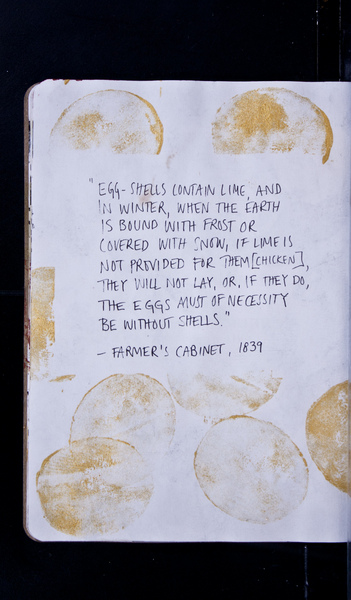 "EGG-SHELLS CONTAIN LIME, AND
IN WINTER, WHEN THE EARTH
IS BOUND WITH FROST OR
COVERED WITH SNOW, IF LIME IS
NOT PROVIDED FOR THEM [CHICKEN],
THEY WILL NOT LAY, OR, IF THEY DO,
THE EGGS MUST OF NECESSITY
BE WITHOUT SHELLS."
– FARMER'S CABINET, 1839